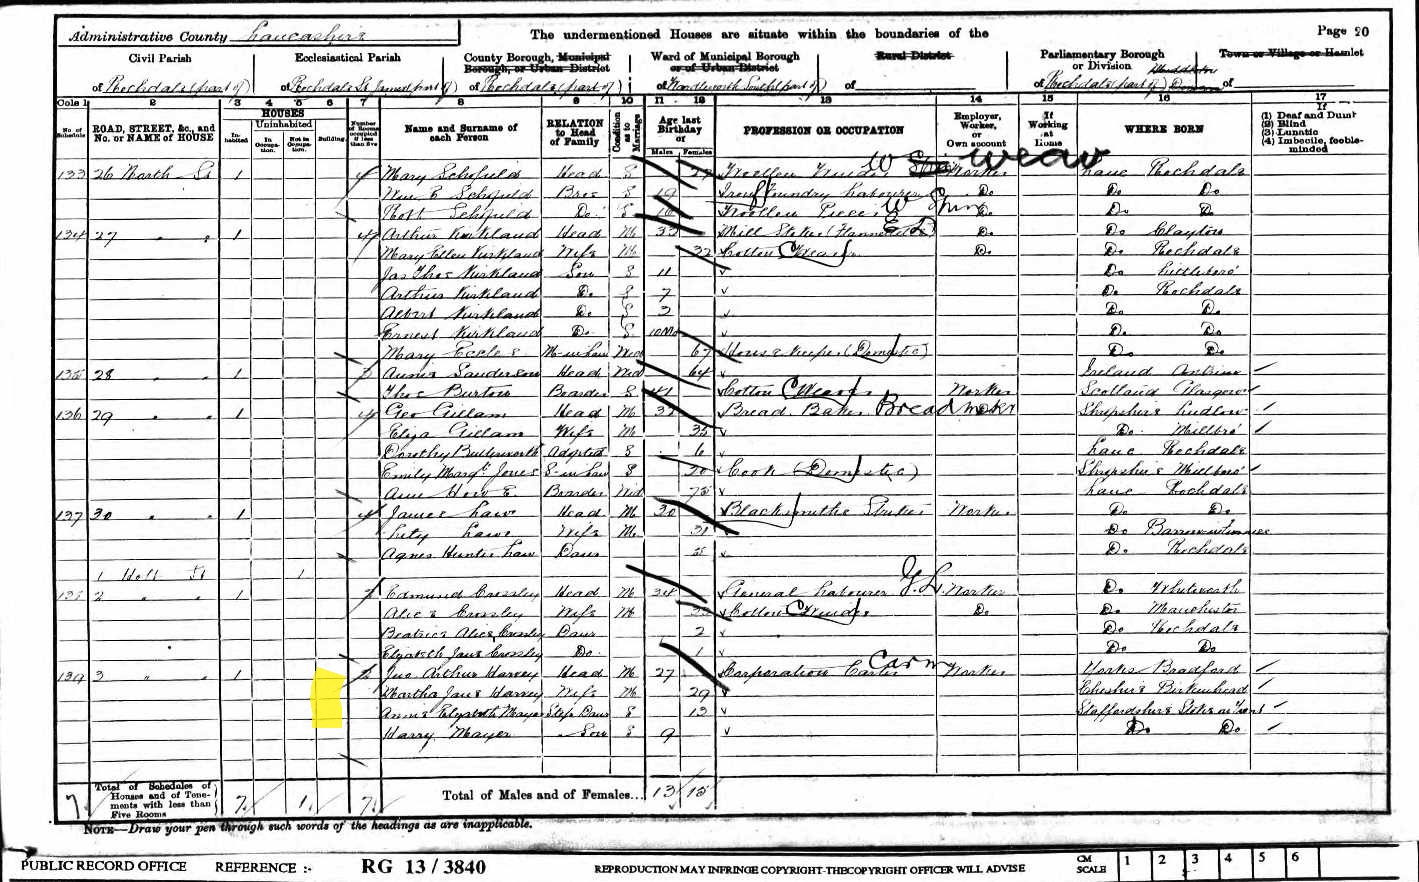 Administrative County Lancashire The undermentioned Houses are situate within the boundaries of the Page 20
Civil Parish Ecclesiastical Parish County Borough, Municipal Borough, or Urban District Ward of Municipal Borough or of Urban District Rural District Parliamentary Borough or Division Town or Village or Hamlet
of Rochdale (part of) of Rochdale St James (part of) of Rochdale (part of) of Wardleworth South (part of) of of Rochdale (part of) of
Cols 1 2 3 4 5 6 7 8 9 10 11 12 13 14 15 16 17
No. of Schedule ROAD, STREET, &c., and No. or NAME of HOUSE HOUSES Inhabited Uninhabited In Occupation. Not in Occupation. Building. Number of Rooms occupied if less than five Name and Surname of each Person RELATION to Head of Family Condition as to Marriage Age last Birthday of Males Females PROFESSION OR OCCUPATION Employer, Worker, or Own account If Working at Home WHERE BORN If (1) Deaf and Dumb (2) Blind (3) Lunatic (4) Imbecile, feeble-minded
133 26 North St 1 4 Mary Schofield Head S 27 Woollen Winder W Weav Worker Lanc Rochdale
Wm E Schofield Bro S 19 Iron Foundry Labourer Do Do Do
Robt Schofield Do S 16 Woollen Piecer W Spin Do Do Do
134 27 " " 1 4 Arthur Kirkland Head M 33 Mill Stoker (Flannel) Do Do Clayton
Mary Ellen Kirkland Wife M 32 Cotton Weaver Do Do Rochdale
Jas Thos Kirkland Son S 11 Do Littleboro'
Arthur Kirkland Do S 7 Do Rochdale
Albert Kirkland Do S 2 Do Do
Ernest Kirkland Do S 10 Mo Do Do
Mary Eccles M-in-law Wid 67 Housekeeper (Domestic) Do Do
135 28 " " 1 3 Annie Sanderson Head Wid 64 Ireland Antrim
Thos Burton Boarder S 41 Cotton Weaver Worker Scotland Glasgow
136 29 " " 1 4 Geo Gillam Head M 37 Bread Baker Bread maker Worker Shropshire Ludlow
Eliza Gillam Wife M 35 Do Millbro'
Dorothy Butterworth Adopted S 6 Lanc Rochdale
Emily Margt Jones S-in-law S 20 Cook (Domestic) Shropshire Millbro'
Ann Howe Boarder Wid 75 Lanc Rochdale
137 30 " " 1 4 James Law Head M 30 Blacksmiths Striker Worker Do Do
Law Wife M 31 Do Barrow in Furness
Agnes Hunter Law Daur 5 Do Rochdale
1 Holt St 1
138 2 " " 1 2 Edmund Crossley Head M 24 General Labourer G.L. Worker Do Whitworth
Alice Crossley Wife M 23 Cotton Winder Do Do Manchester
Beatrice Alice Crossley Daur 2 Do Rochdale
Elizabeth Jane Crossley Do 1 Do Do
139 3 " " 1 2 Jno Arthur Harvey Head M 27 Corporation Carter Carman Worker Yorks Bradford
Martha Jane Harvey Wife M 29 Cheshire Birkenhead
Annie Elizabeth Mayer Step Daur S 13 Staffordshire Stoke on Trent
Harry Mayer " Son S 9 Do Do
7 Total of Schedules of Houses and of Tenements with less than Five Rooms 7 1 7 Total of Males and of Females... 13 15
NOTE—Draw your pen through such words of the headings as are inapplicable.
PUBLIC RECORD OFFICE REFERENCE :- RG 13 / 3840 REPRODUCTION MAY INFRINGE COPYRIGHT-THECOPYRIGHT OFFICER WILL ADVISE CM SCALE 1 2 3 4 5 6